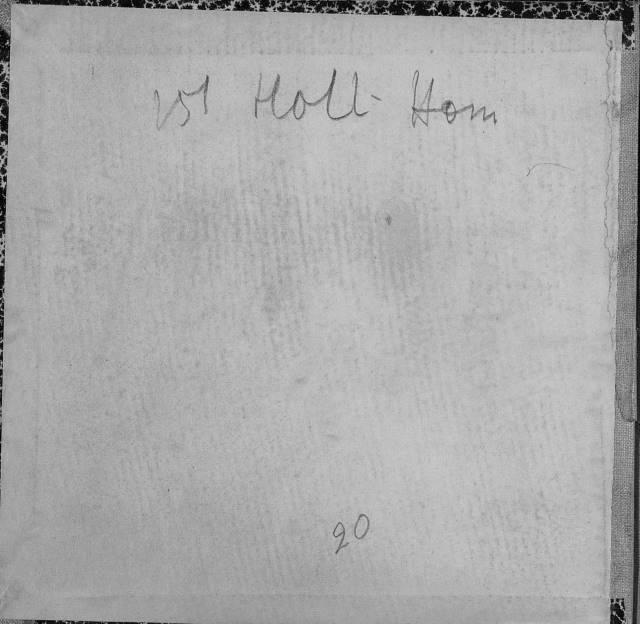 151 Holl- Hom
20